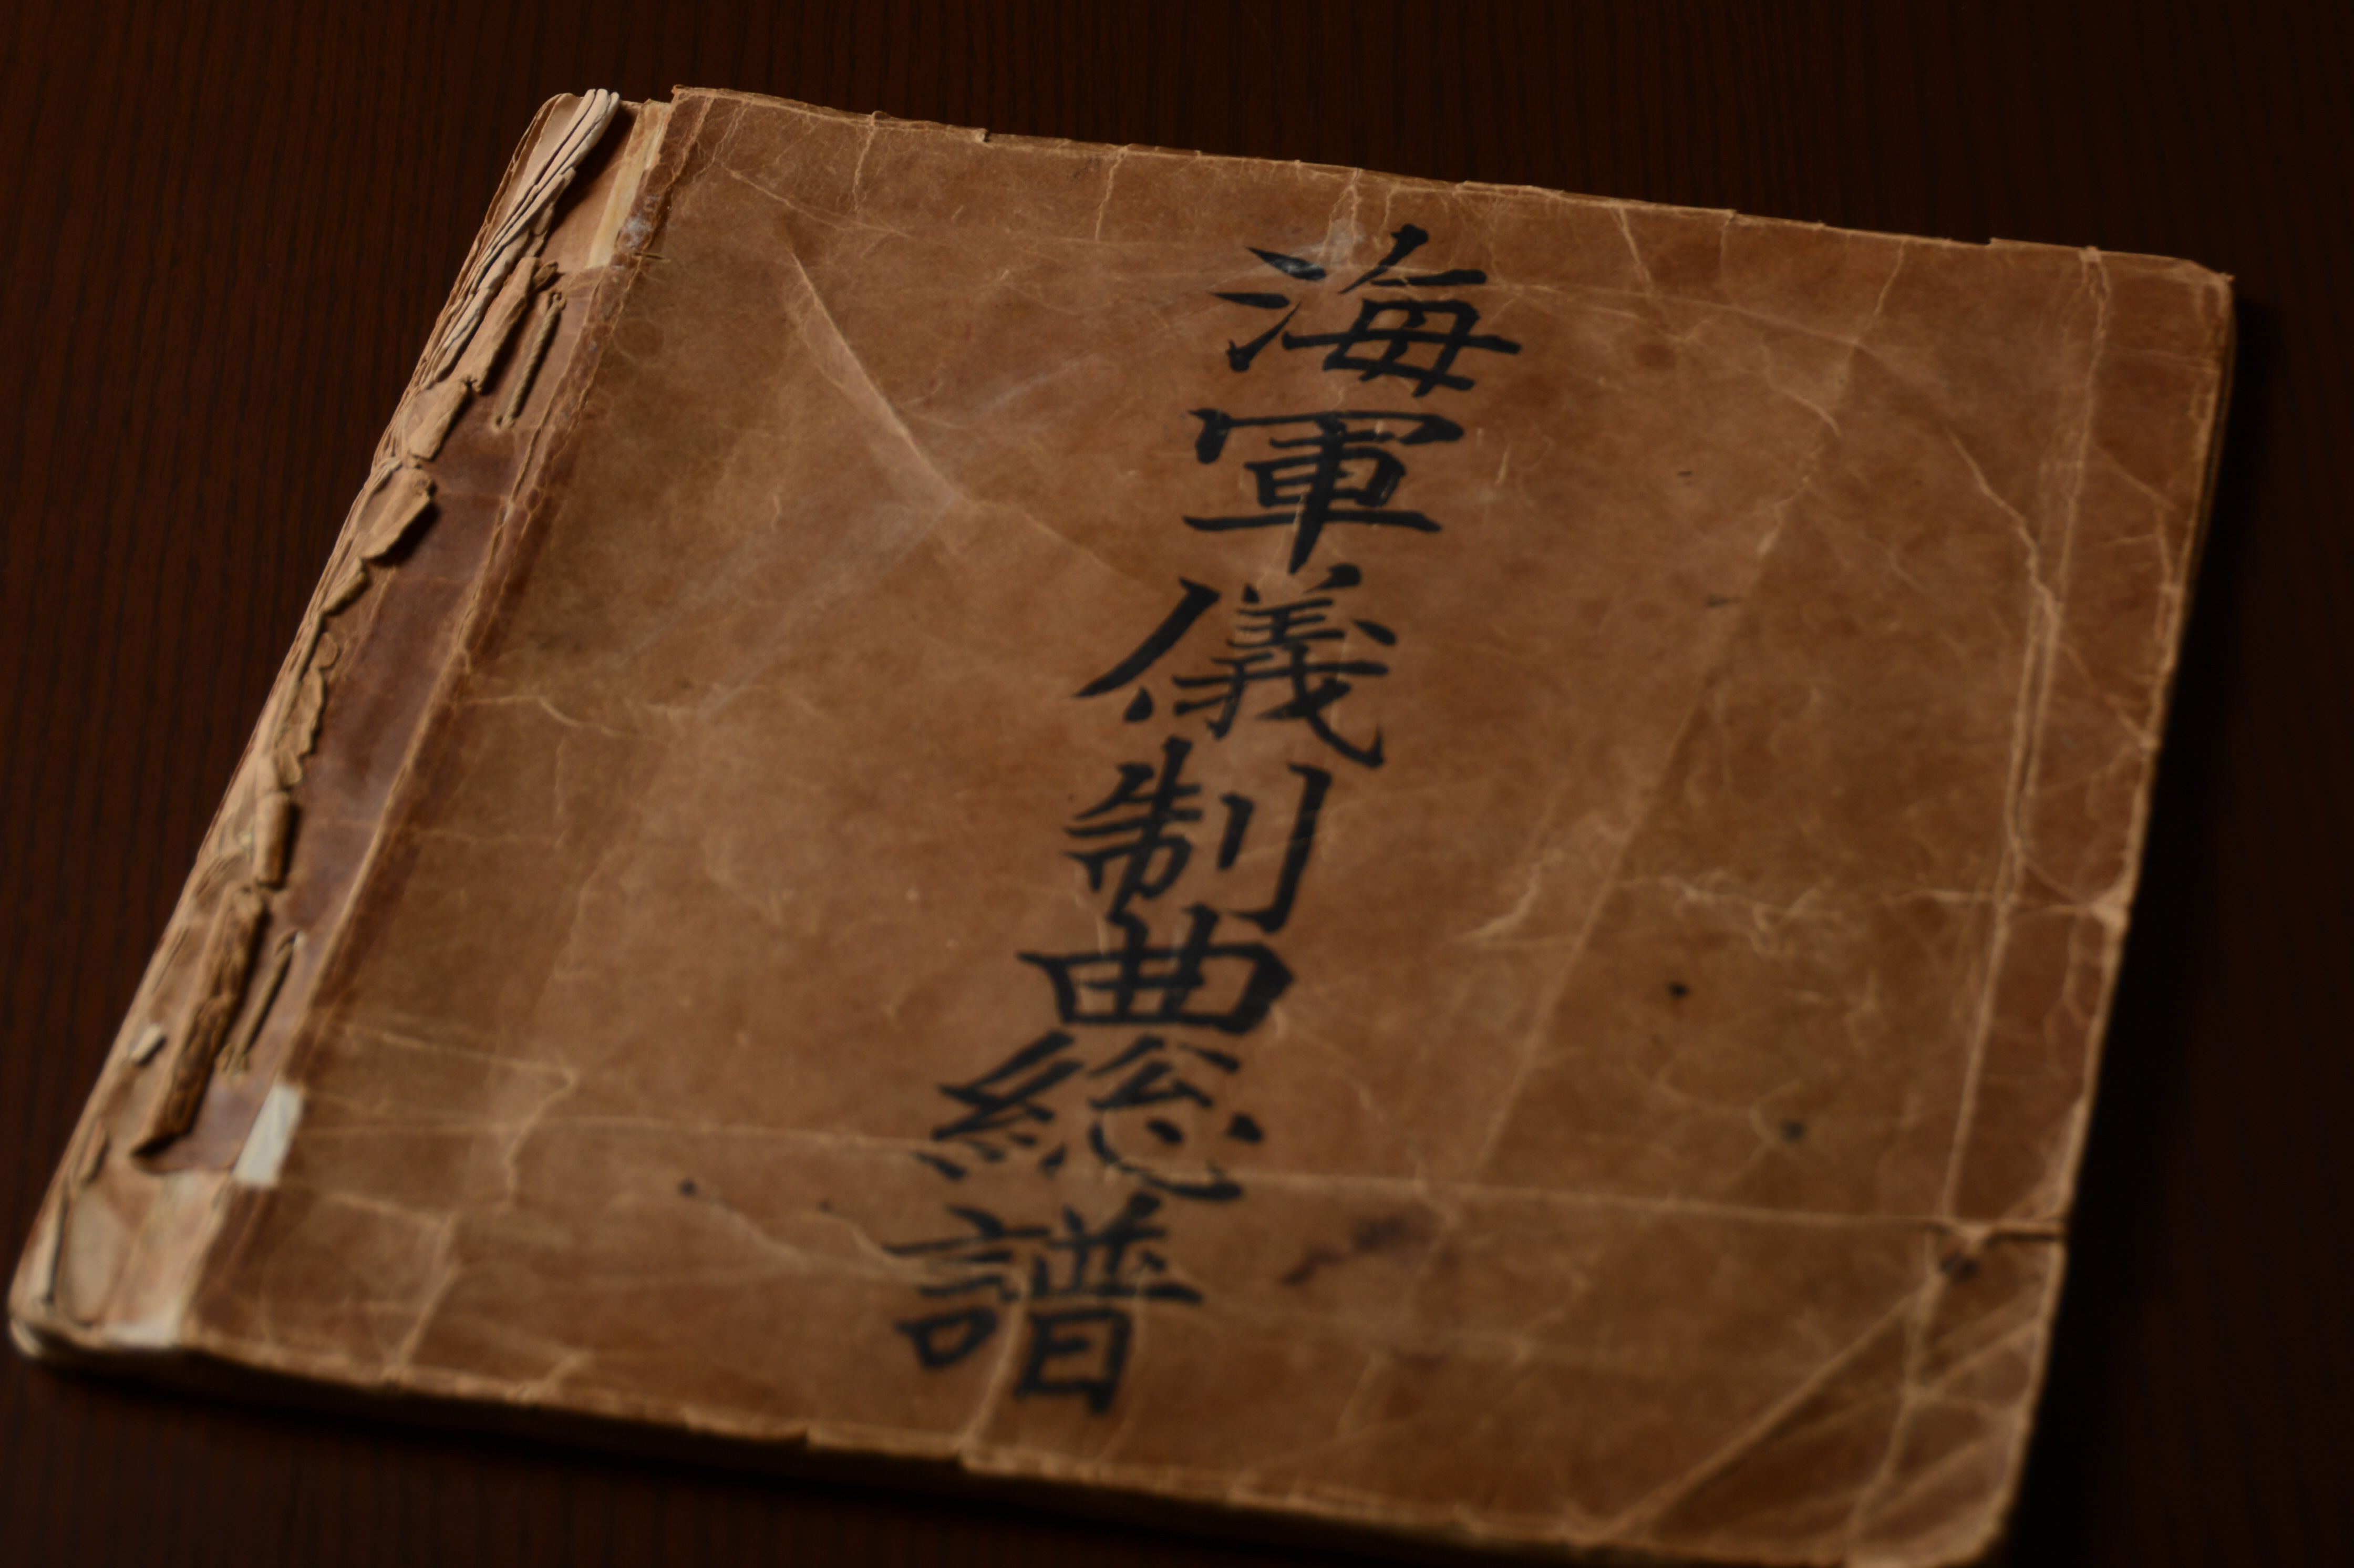 海軍儀制曲総譜